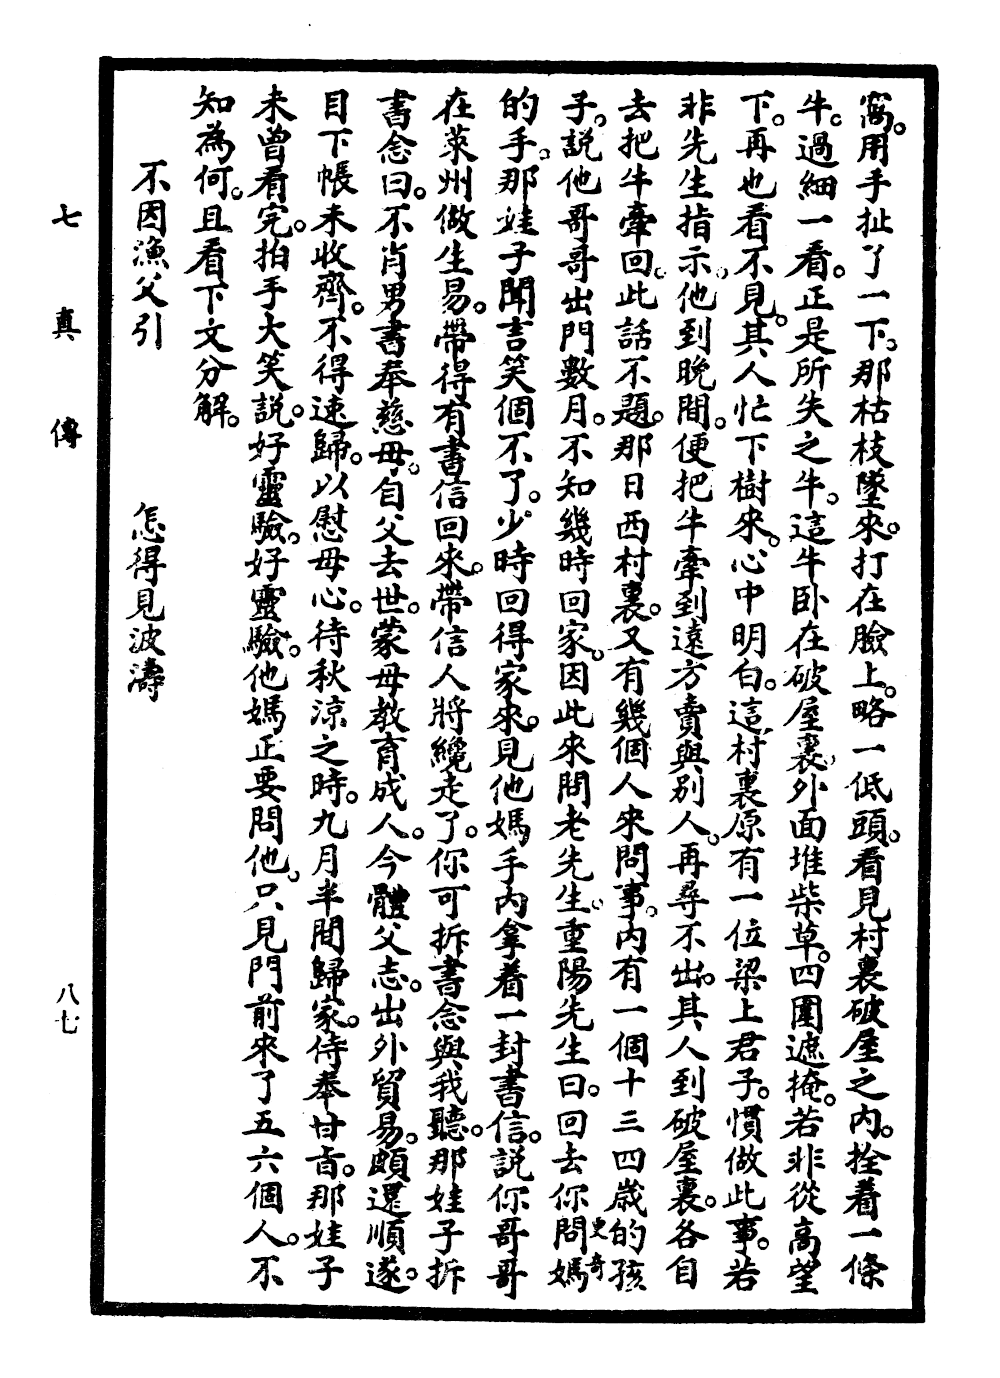 窩。用手扯了一下。那枯枝墜來。打在臉上。略一低頭。看見村裏破屋之內。拴着一條
牛。過細一看。正是所失之牛。這牛卧在破屋裏。外面堆柴草。四圍遮掩。若非從高望
下。再也看不見。其人忙下樹來。心中明白。這村裏原有一位梁上君子。慣做此事。若
非先生指示。他到晚間。便把牛牽到遠方賣與別人。再尋不出。其人到破屋裏。各自
去把牛牽回。此話不題。那日西村裏。又有幾個人來問事。內有一個十三四歲的孩
子。説他哥哥出門數月。不知幾時回家。因此來問老先生。重陽先生曰。回去你問媽
更奇
的手。那娃子聞言笑個不了。少時回得家來。見他媽手內拿着一封書信。説你哥哥
在萊州做生易。帶得有書信回來。帶信人將纔走了。你可拆書念與我聽。那娃子拆
書念曰。不肖男書奉慈母。自父去世。蒙母教育成人。今體父志。出外貿易。頗還順遂。
目下帳未收齊。不得速歸。以慰母心。待秋涼之時。九月半間歸家。侍奉甘旨。那娃子
未曾看完。拍手大笑説。好靈驗。好靈驗。他媽正要問他。只見門前來了五六個人。不
知為何。且看下文分解。
不因漁父引　怎得見波濤
七真傳　八七